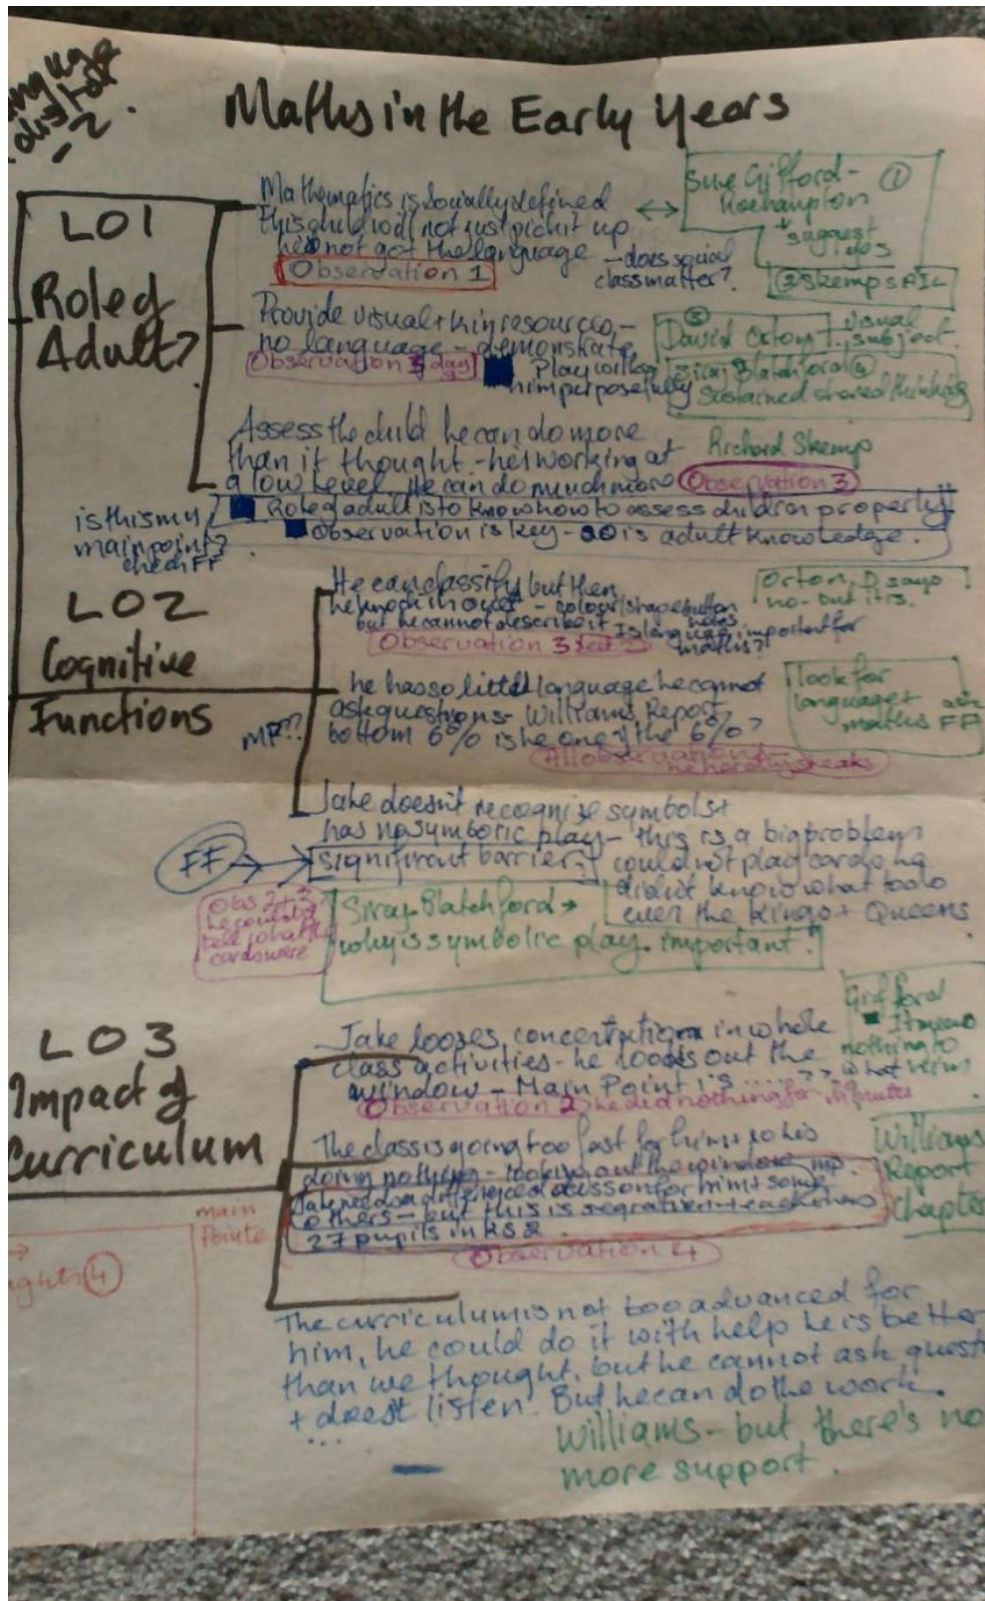 Maths in the Early Years
LO1
Role of
Adult?
Mathematics is Socially defined
this child will not just pick it up
he not got the language - does social
class matter?
Observation 1
Sue Gifford - ①
Roehampton
suggest
② Skemps PIL
Provide visual + kin resources, -
no language - demonstrate
Observation 3
Play with
him purposefully
③
David Orton visual
subject.
Siraj Blatchford ④
Sustained shared thinking
Assess the child he can do more
than it thought - he's working at
a low level. He can do much more
Richard Skemp
Observation 3
Role of adult is to know how to assess children properly
Observation is key - so is adult knowledge.
is this my
main point?
check FF
LO2
Cognitive
Functions
He can classify but then
he knock it over - colour/shape button
holes
but he cannot describe it Is language important for
maths?
Observation 3
Orton, D says
no - but it is.
he has so little language he cannot
ask questions - Williams Report
bottom 6% is he one of the 6%?
MP??
All observations -
he hardly speaks
look for
language +
maths ask
FF
Jake doesn't recognize symbols +
has no symbolic play - this is a big problem
significant barrier? could not play cards he
didn't know what to do
even the Kings + Queens
FF
Obs 2+3
he couldn't
tell what the
cards were
Siraj-Blatchford →
why is symbolic play important?
LO3
Impact of
Curriculum
Jake looses concentration in whole
class activities - he looks out the
window - Main Point is ..... ??
Observation 2 he did nothing for 19 minutes
Gifford
It means
nothing to
him
The class is going too fast for him + so he's
doing nothing - looking out the window mp.
Jake needs a differenced lesson for him + some
others - but this is segration + teacher has
27 pupils in KS2.
Observation 4
Williams
Report
Chapter
main
Points
④
The curriculum is not too advanced for
him, he could do it with help he is better
than we thought, but he cannot ask quest
+ does't listen. But he can do the work.
...
Williams - but there's no
more support.